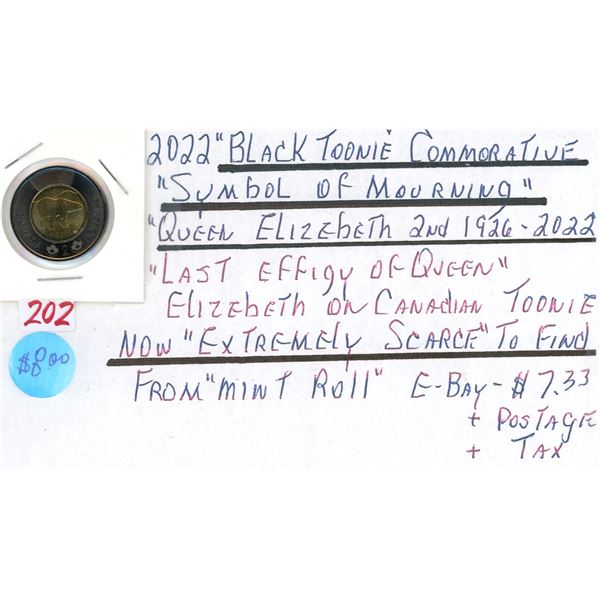 2022 "BLACK TOONIE COMMORATIVE
"SYMBOL OF MOURNING"
"QUEEN ELIZEBETH 2nd 1926-2022
"LAST EFFIGY OF QUEEN"
ELIZEBETH ON CANADIAN TOONIE
NOW "EXTREMELY SCARCE" TO FIND
FROM "MINT ROLL" E-BAY-$7.33
+ POSTAGE
+ TAX
202
$8.00